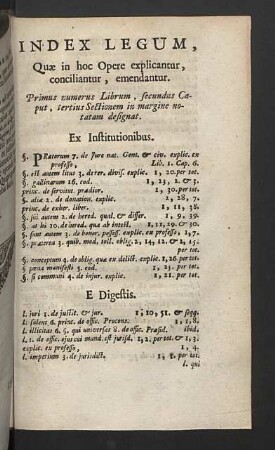 INDEX LEGUM,
Quæ in hoc Opere explicantur,
conciliantur, emendantur.
Primus numerus Librum, secundus Ca-
put, tertius Sectionem in margine no-
tatam designat.
Ex Institutionibus.
§. PRæterum 7. de Jure nat. Gent. & civ. explic. ex
professo, Lib. 1. Cap. 6.
§. est autem litus 3. de rer. divis. explic. 1, 20. per tot.
§. gallinarum 16. eod. 1, 23, 2. & 3.
princ. de servitut. prædior. 1, 30. per tot.
§. aliæ 2. de donation. explic. 1, 28, 7.
princ. de exher. liber. 1, 11, 36.
§. sui autem 2. de hered. qual. & differ. 1, 9, 39.
§. at hi 10. de hered. quæ ab intest. 1, 11, 29. & 30.
§. sunt autem 3. de bonor. possess. explic. ex professo, 1, 7.
§. præterea 3. quib. mod. toll. oblig. 2, 14, 12. & 2, 15.
per tot.
§. conceptum 4. de oblig. quæ ex delict. explic. 1, 26. per tot.
§. pœna manifesti 5. eod. 1, 23. per tot.
§. si communi 4. de injur. explic. 1, 21. per tot.
E Digestis.
l. juri 3. de justit. & jur. 1, 10, 51. & seqq.
l. solent 6. princ. de offic. Procons. 1, 1, 8.
l. illicitas 6. §. qui universas 8. de offic. Præsid. ibid.
l. 1. de offic. ejus cui mand. est jurisd. 1, 2. per tot. & 1, 3.
explic. ex professo, 1, 4.
l. imperium 3. de jurisdict. 1, 4. per tot.
l. qui